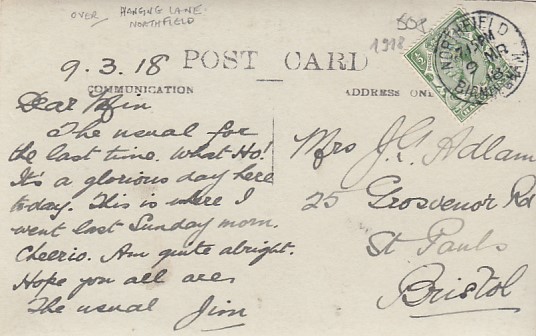 OVER HANGING LANE
NORTHFIELD
50p
1918
NORTHFIELD
15 PM
9 MR
18
BIRMINGHAM
POST CARD
9.3.18
COMMUNICATION
ADDRESS ONL
Dear Min
The usual for
the last time. What Ho!
It's a glorious day here
to-day. This is where I
went last Sunday morn.
Cheerio. Am quite alright.
Hope you all are
The usual Jim
Mrs J.G. Adlam
25 Grosvenor Rd
St Pauls
Bristol